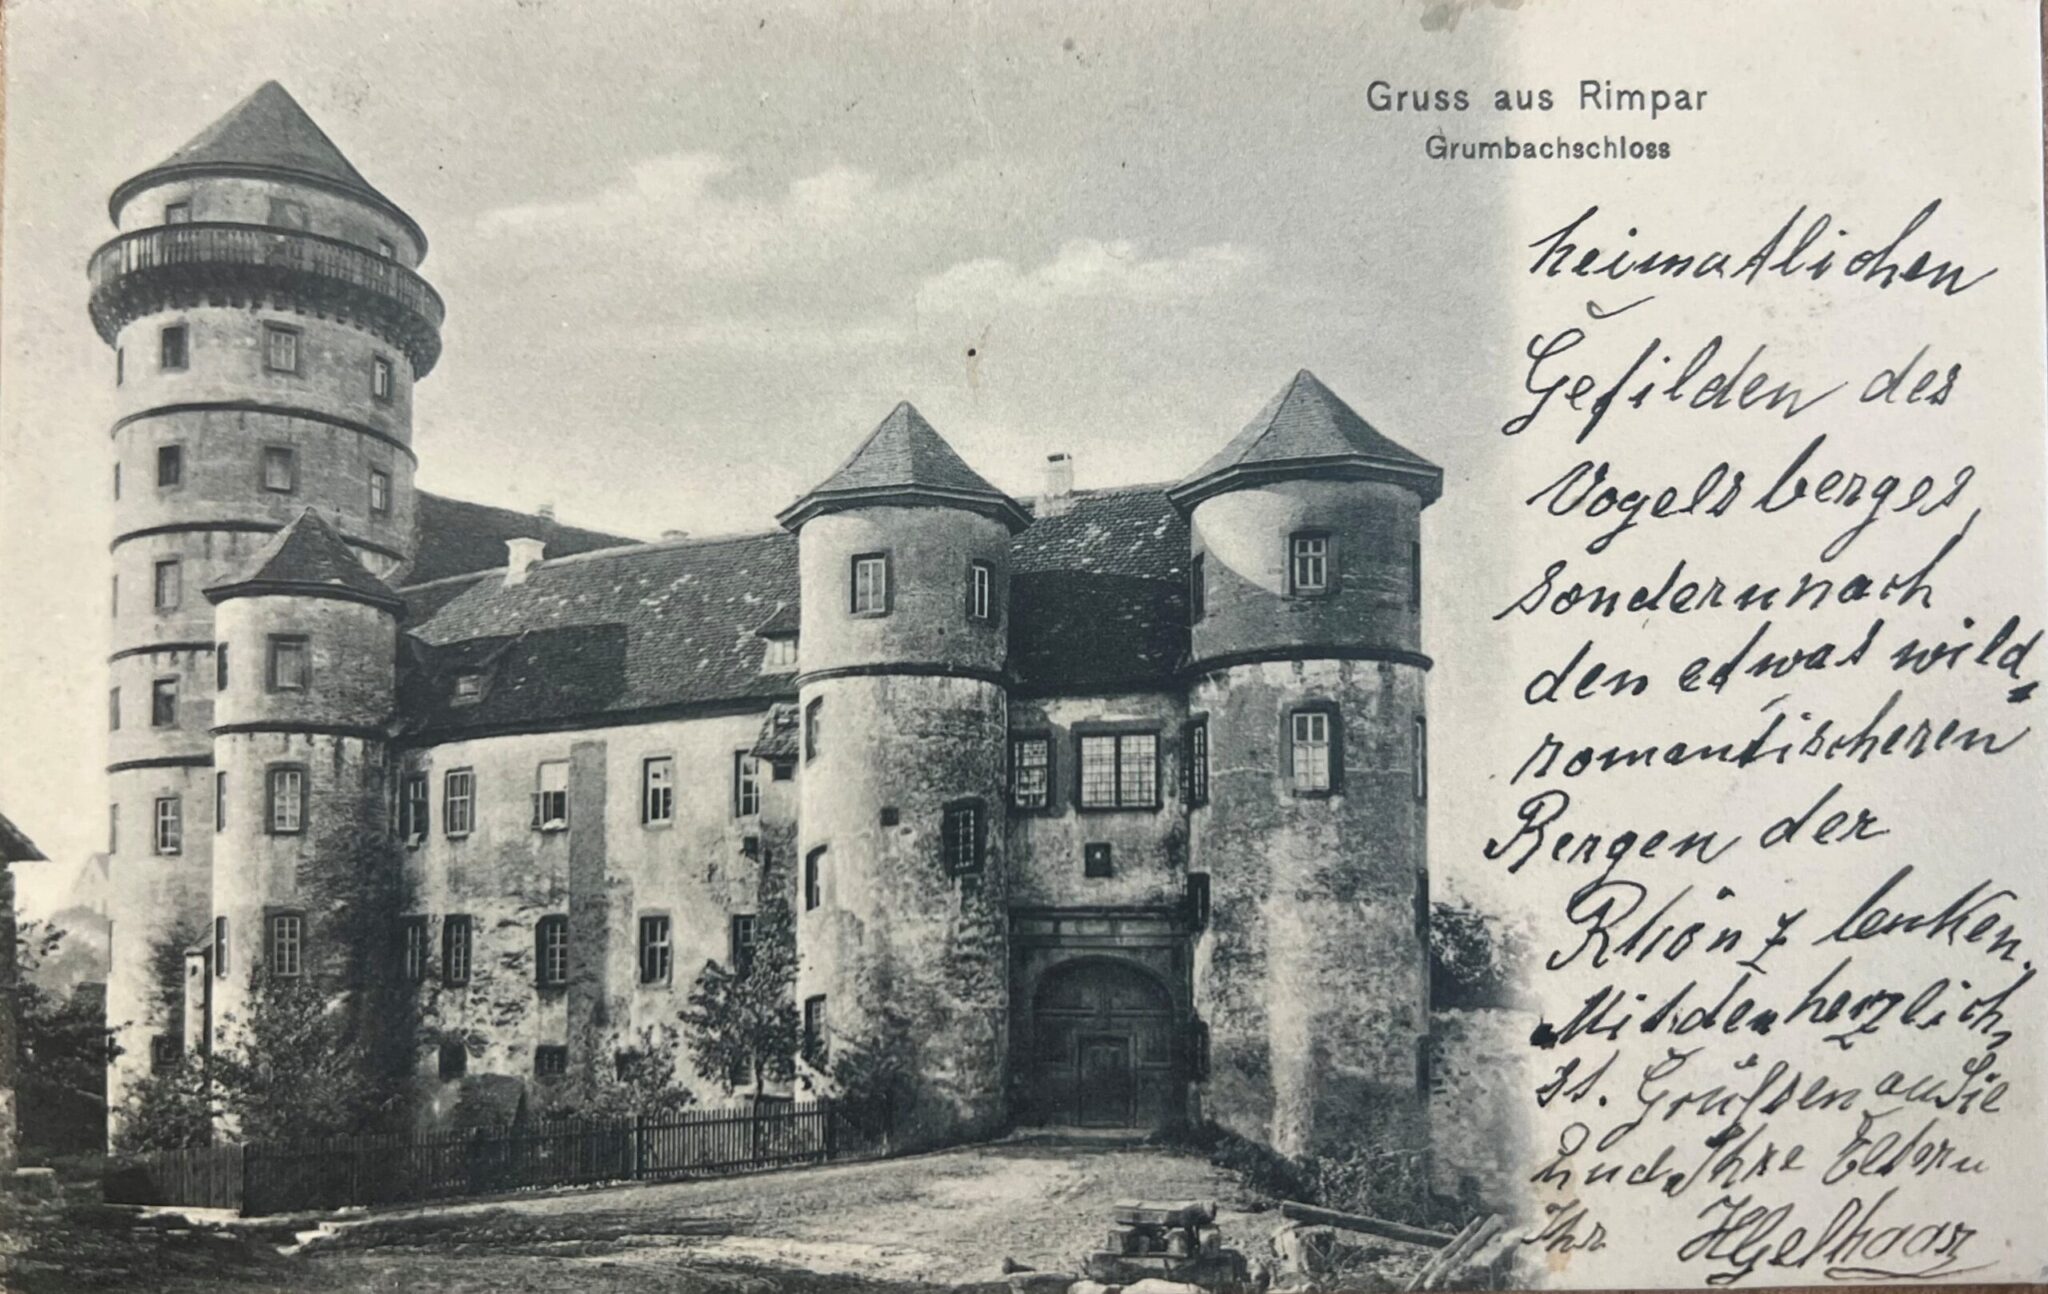 Gruss aus Rimpar
Grumbachschloss
heimatlichen
Gefilden des
Vogelsberges,
sondern nach
den etwas wild-
romantischeren
Bergen der
Rhön z lenken.
Mit den herzlich-
st. Grüßen an Sie
und Ihre Eltern
Ihr HGelhaar